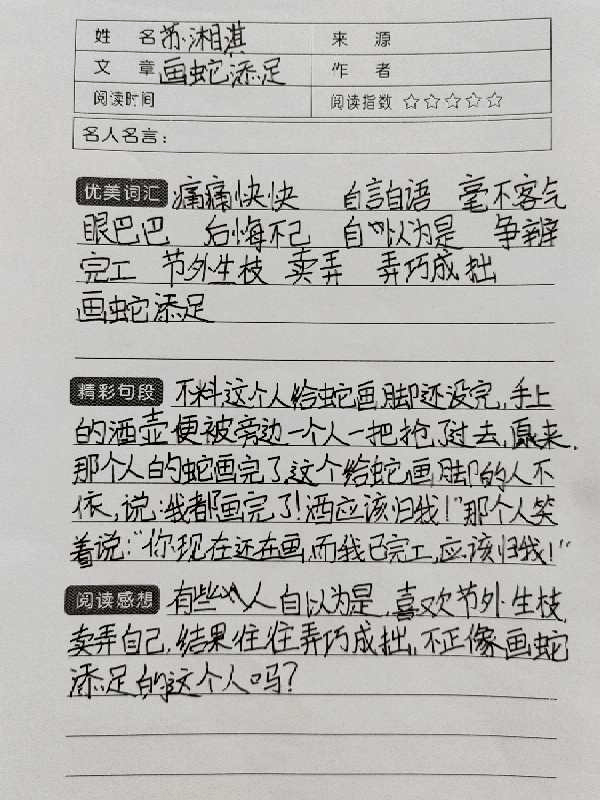 姓 名 苏湘淇 来 源
文 章 画蛇添足 作 者
阅读时间 阅读指数 ☆☆☆☆☆
名人名言:
优美词汇 痛痛快快 自言自语 毫不客气
眼巴巴 后悔不已 自以为是 争辨
完工 节外生枝 卖弄 弄巧成拙
画蛇添足
精彩句段 不料这个人给蛇画脚还没完,手上
的酒壶便被旁边一个人一把抢了过去,原来,
那个人的蛇画完了,这个给蛇画脚的人不
依,说:“我都画完了!酒应该归我!”那个人笑
着说:“你现在还在画,而我已完工,应该归我!”
阅读感想 有些人自以为是,喜欢节外生枝,
卖弄自己,结果往往弄巧成拙,不正像画蛇
添足的这个人吗?